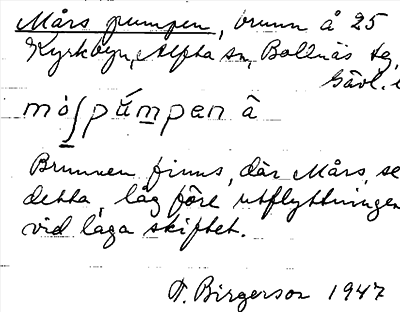 Mårs pumpen, brunn å 25
Kyrkbyn, Alfta sn, Bollnäs tg,
Gävl. l
mòʃpúmpen â
Brunnen finns, där Mårs, se
detta, låg före utflyttningen
vid laga skiftet.
T. Birgerson 1947